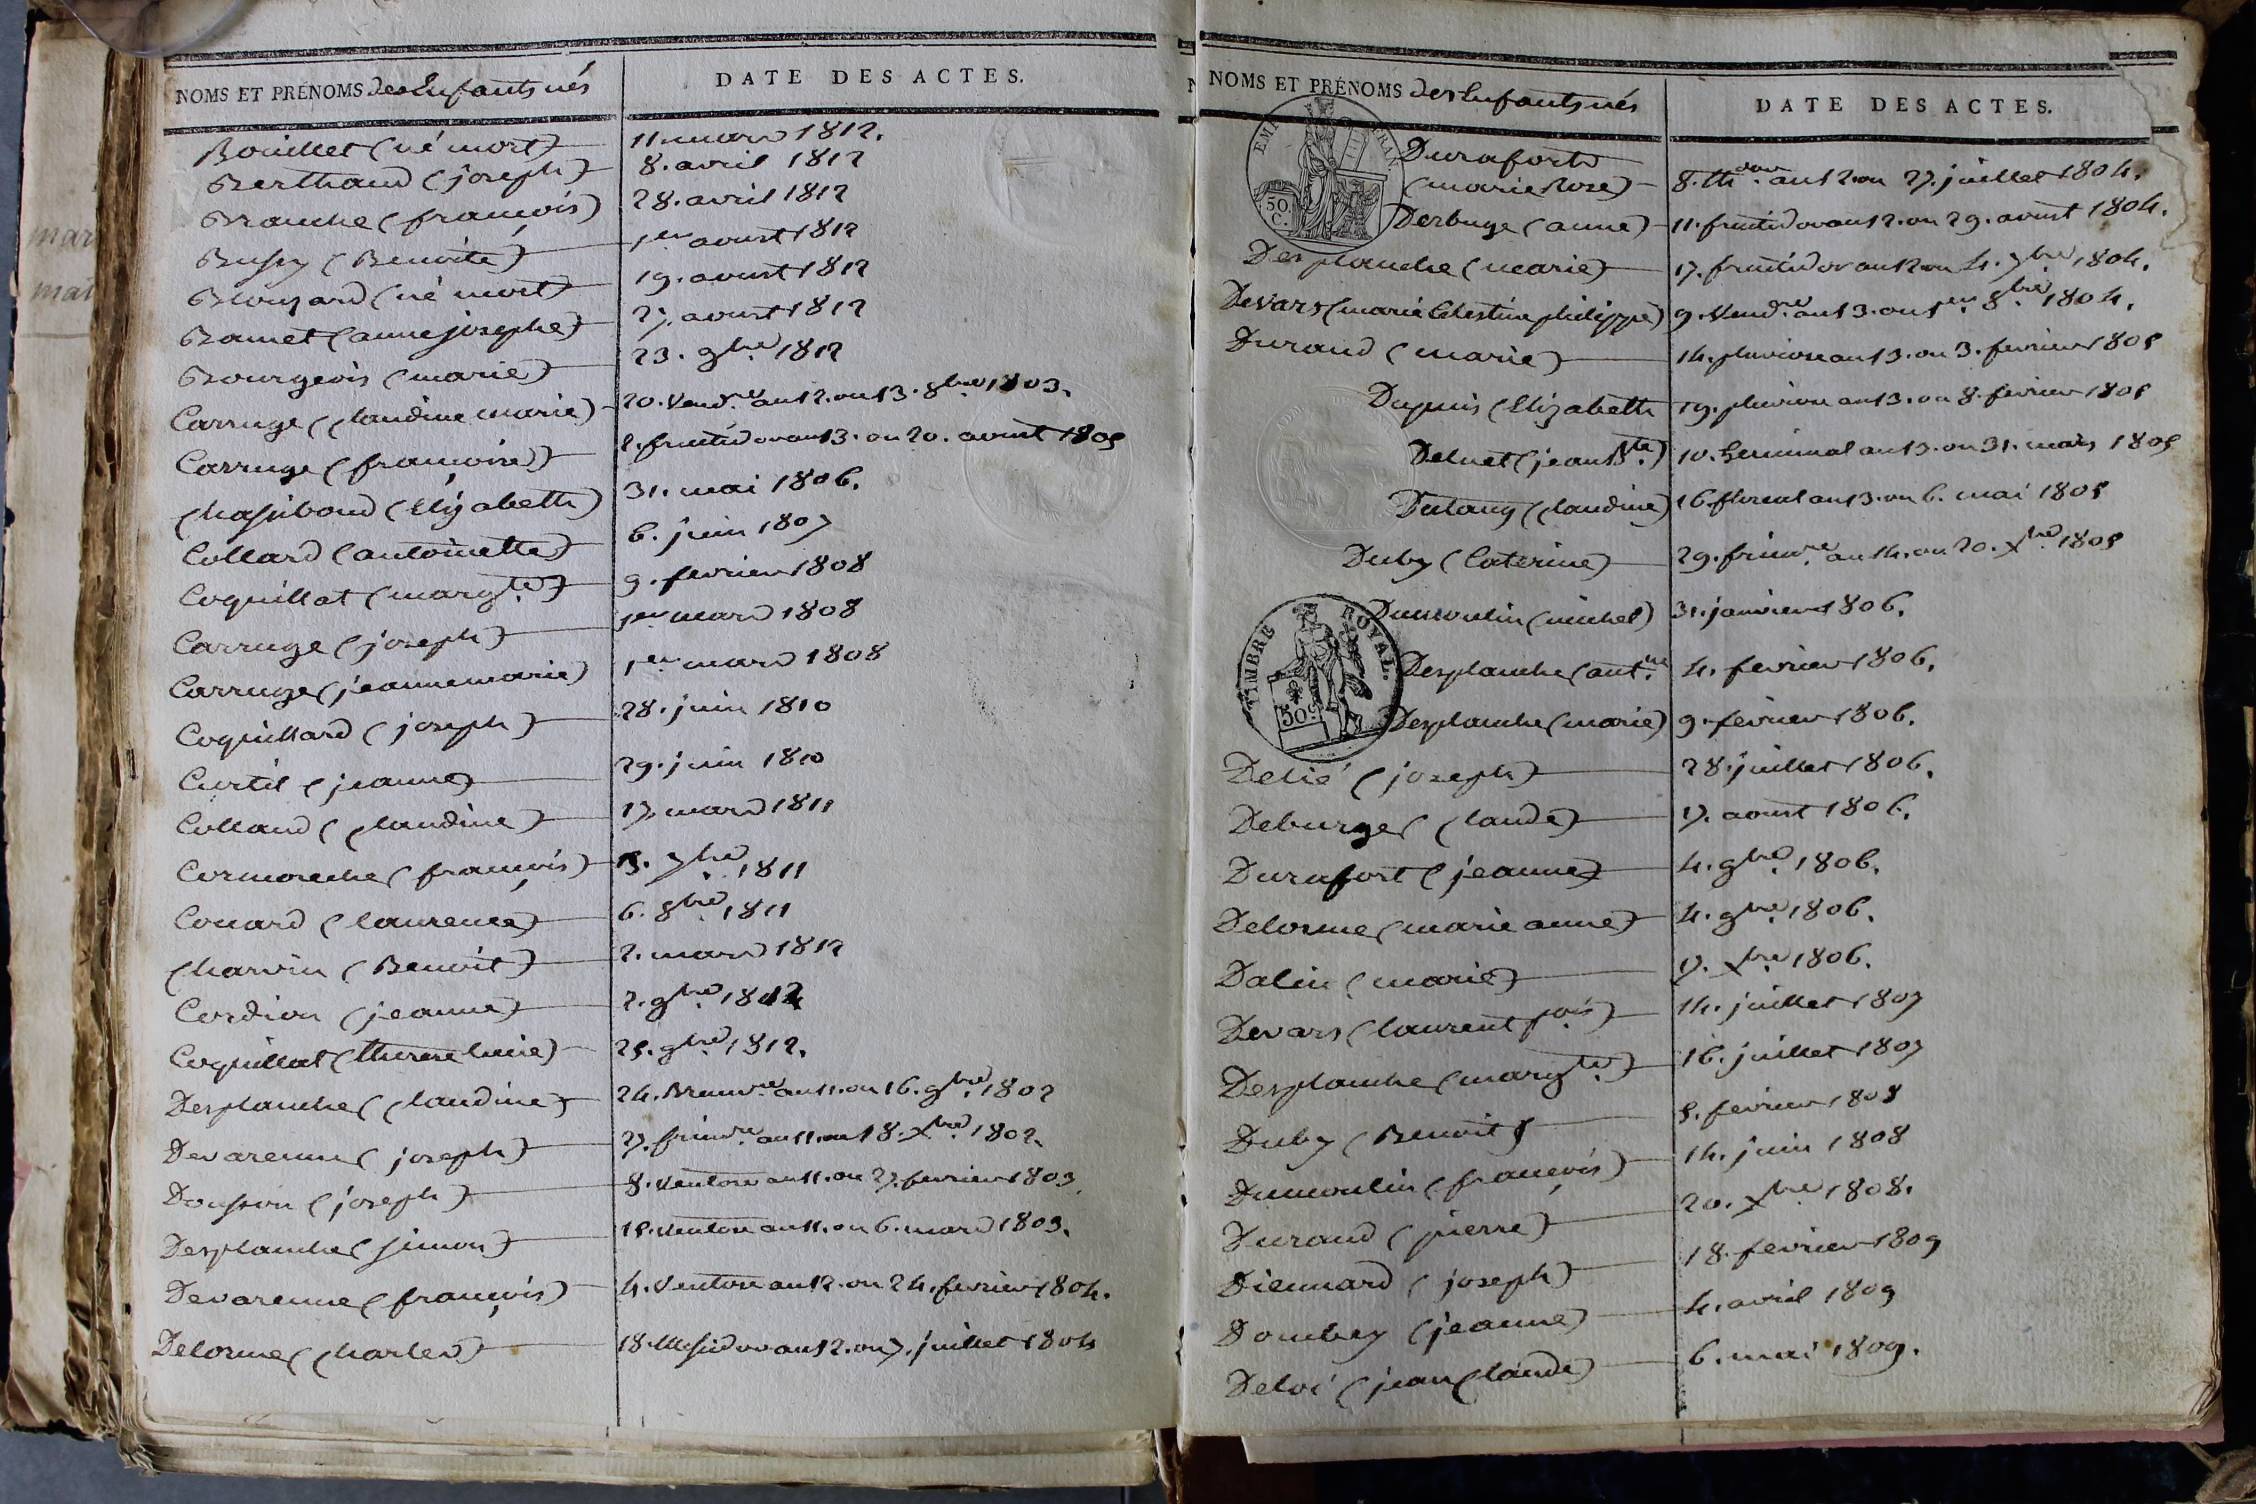 NOMS ET PRÉNOMS des Enfants nés
DATE DES ACTES.
Bouillet (né mort) 11. mars 1812.
Berthaud (joseph) 8. avril 1812
Branche (françois) 28. avril 1812
Bussy (Benoite) 1er aoust 1812
Blouzard (né mort) 19. aoust 1812
Bonnet (anne josephe) 27. aoust 1812
Bourgeois (marie) 23. 9bre 1812
Carruge (Claudine marie) 20. Vendre an 12. ou 13. 8bre 1803.
Carruge (françoise) 2. fructidor an 13. ou 20. aoust 1805
Chassiboud (Elizabeth) 31. mai 1806.
Collard (antoinette) 6. juin 1807
Coquillat (margte) 9. fevrier 1808
Carruge (joseph) 1er mars 1808
Carruge (jeanne marie) 1er mars 1808
Coquillard (joseph) 28. juin 1810
Curtil (jeanne) 29. juin 1810
Collaud (Claudine) 17. mars 1811
Cormoreche (françois) 7bre 1811
Couard (laurence) 6. 8bre 1811
Charvin (Benoit) 2. mars 1812
Cordion (jeanne) 2. 9bre 1812
Coquillat (therese lucie) 25. 9bre 1812.
Desplanche (Claudine) 24. Brumre an 11. ou 16. 9bre 1802
Devarenne (joseph) 27. frimre an 11. ou 18. Xbre 1802.
Dousson (joseph) 8. Ventose an 11. ou 27. fevrier 1803.
Desplanche (simon) 15. Ventose an 11. ou 6. mars 1803.
Devarenne (françois) 4. Ventose an 12. ou 24. fevrier 1804.
Delorme (Charles) 18. Messidor an 12. ou 7. juillet 1804
NOMS ET PRÉNOMS des Enfants nés
DATE DES ACTES.
EMP FRAN.
50. C.
Durafort
(marie Rose) 8. thdor an 12. ou 27. juillet 1804.
Derbuge (anne) 11. fructidor an 12. ou 29. aoust 1804.
Desplanche (marie) 17. fructidor an 12 ou 4. 7bre 1804.
Devars (marie Celestine philippe) 9. Vendre an 13. ou 1er 8bre 1804.
Durand (marie) 14. pluviose an 13. ou 3. fevrier 1805
Dupuis (Elizabeth 19. pluviose an 13. ou 8. fevrier 1805
Deluet (jean Bte) 10. Germinal an 13. ou 31. mars 1805
Dulauy (Claudine) 16. floreal an 13. ou 6. mai 1805
Duby (Caterine) 29. frimre an 14. ou 20. Xbre 1805
Dumoulin (michel) 31. janvier 1806.
TIMBRE ROYAL.
50c
Desplanche (antne 4. fevrier 1806.
Desplanche (marie) 9. fevrier 1806.
Delié (joseph) 28. juillet 1806.
Deburge (Claude) 17. aoust 1806.
Durafort (jeanne) 4. 9bre 1806.
Delorme (marie anne) 4. 9bre 1806.
Dalin (marie) 17. Xbre 1806.
Devars (laurent fois) 14. juillet 1807
Desplanche (margte) 16. juillet 1807
Duby (Benoit) 5. fevrier 1808
Dumoulin (françois) 14. juin 1808
Durand (pierre) 20. Xbre 1808.
Diennard (joseph) 18. fevrier 1809
Dombey (jeanne) 4. avril 1809
Deloi (jean Claude) 6. mai 1809.